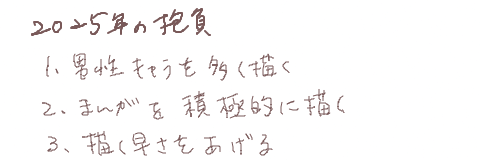 2025年の抱負
1、男性キャラを多く描く
2、まんがを積極的に描く
3、描く早さをあげる